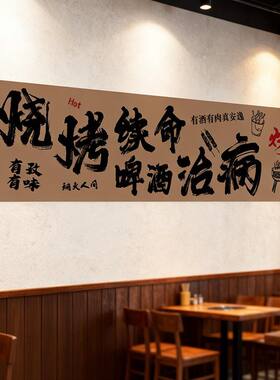 Hot
烧烤续命
有酒有肉真安逸
啤酒治病
有孜
有味
烟火人间